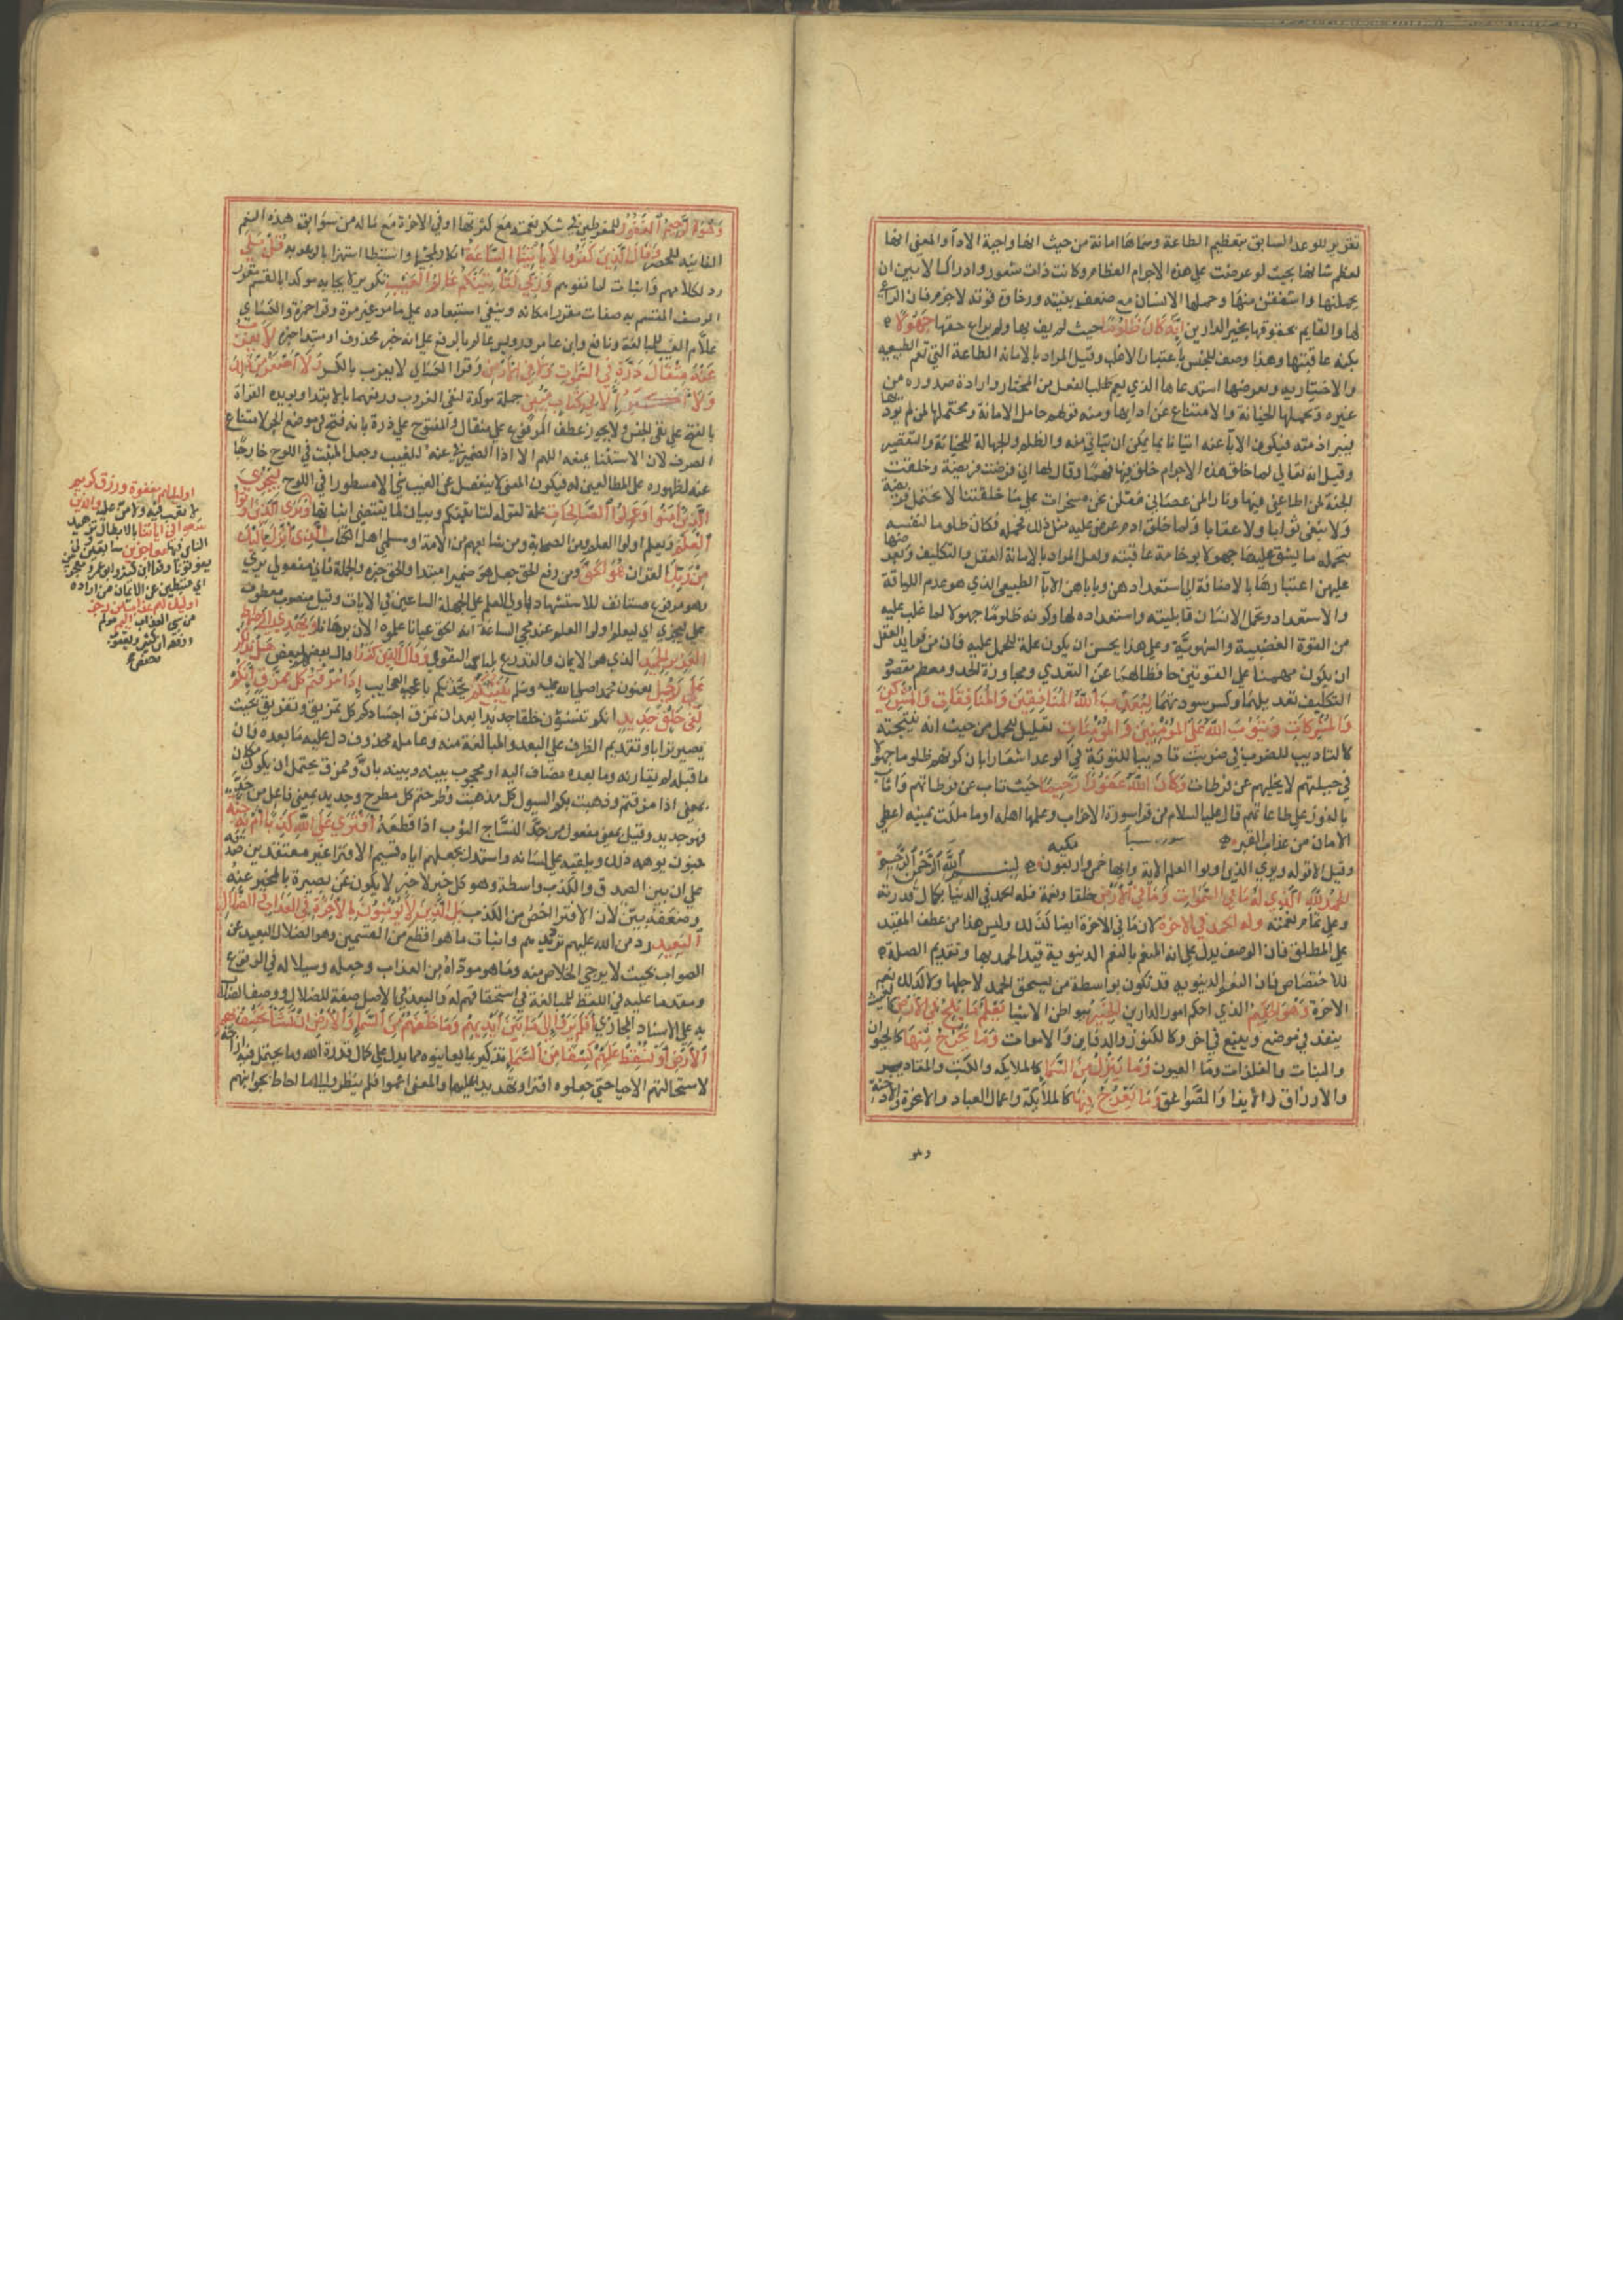 تقرير للوعد السابق بتعظيم الطاعة وسماها امانة من حيث انها واجبة الاداء والمعنى انها
لعظم شانها بحيث لو عرضت على هذه الاجرام العظام وكانت ذات شعور وادراك لابين ان
يحملنها واشفقن منها وحملها الانسان مع ضعف بنيته ورخاوة قوته لاجرم فان الراعي
لها والقايم بحقوقها بخير الدارين إنه كان ظلوما حيث لم يف بها ولم يراع حقها جهولا
بكنه عاقبتها وهذا وصف للجنس باعتبار الاغلب وقيل المراد بالامانة الطاعة التي تعم الطبيعية
والاختيارية وبعرضها استدعاها الذي يعم طلب الفعل من المختار وارادة صدوره من
غيره وبحملها الخيانة والامتناع عن ادايها ومنه قولهم حامل الامانة ومحتملها لمن لم يودها
فيبرا ذمته فيكون الابا عنه اتيانا بما يمكن ان يتاتى منه والظلم والجهالة للخيانة والتقصير
وقيل انه تعالى لما خلق هذه الاجرام خلق فيها فهما وقال لها اني فرضت فريضة وخلقت
الجنة لمن اطاعني فيها ونارا لمن عصاني فقلن نحن مسخرات على ما خلقتنا لا نحتمل فريضة
ولا نبغي ثوابا ولا عقابا ولما خلق ادم عرض عليه مثل ذلك فحمله فكان ظلوما لنفسه
بتحمله ما يشق عليها جهولا بوخامة عاقبته ولعل المراد بالامانة العقل والتكليف وبعرضها
عليهن اعتبارها بالاضافة الى استعدادهن وباباهن الابا الطبيعي الذي هو عدم اللياقة
والاستعداد وبحمل الانسان قابليته واستعداده لها وكونه ظلوما جهولا لما غلب عليه
من القوة الغضبية والشهوية وعلى هذا يحسن ان يكون علة للحمل عليه فان من فوايد العقل
ان يكون مهيمنا على القوتين حافظا لهما عن التعدي ومجاوزة الحد ومعظم مقصود
التكليف تعديلهما وكسر سورتهما ليعذب الله المنافقين والمنافقات والمشركين
والمشركات ويتوب الله على المؤمنين والمؤمنات تعليل للحمل من حيث انه نتيجته
كالتاديب للضرب في ضربت تاديبا للتوبة في الوعد اشعارا بان كونهم ظلوما جهولا
في جبلتهم لا يخليهم عن فرطات وكان الله غفورا رحيما حيث تاب عن فرطاتهم واثاب
بالفوز على طاعاتهم قال عليه السلام من قرا سورة الاحزاب وعلمها اهله او ما ملكت يمينه اعطي
الامان من عذاب القبر سورة سبا مكية
وقيل الا قوله ويرى الذين اوتوا العلم الاية وايها خمس واربعون بسم الله الرحمن الرحيم
الحمد لله الذي له ما في السموات وما في الارض خلقا ونعمة فله الحمد في الدنيا بكمال قدرته
وعلى تمام نعمته وله الحمد في الاخرة لان ما في الاخرة ايضا كذلك وليس هذا من عطف المقيد
على المطلق فان الوصف يدل على انه المنعم بالنعم الدنيوية قيد الحمد بها وتقديم الصلة
للاختصاص فان النعم الدنيوية قد تكون بواسطة من يستحق الحمد لاجلها ولا كذلك نعيم
الاخرة وهو الحكيم الذي احكم امور الدارين الخبير ببواطن الاشيا يعلم ما يلج في الارض كالغيث
ينفذ في موضع وينبع في اخر وكالكنوز والدفاين والاموات وما يخرج منها كالحيوان
والنبات والفلزات وما العيون وما ينزل من السما كالملايكة والكتب والمقادير
والارزاق والانداء والصواعق وما يعرج فيها كالملائكة واعمال العباد والابخرة والادخنة
وهو
وهو الرحيم الغفور للمفرطين في شكر نعمته مع كثرتها او في الاخرة مع ماله من سوابق هذه النعم
الفانية للحصر وقال الذين كفروا لا تاتينا الساعة انكار لمجيئها واستبطا استهزا بالوعد به قل بلى
رد لكلامهم واثبات لما نفوه وربي لتاتينكم عالم الغيب تكرير لايجابه موكدا بالقسم مقررا
لوصف المقسم به بصفات تقرر امكانه وينفي استبعاده على ما مر غير مرة وقرا حمزة والكسائي
علام الغيب للمبالغة ونافع وابن عامر ورويس عالم بالرفع على انه خبر محذوف او مبتدا خبره لا يعزب
عنه مثقال ذرة في السموات ولا في الارض وقرا الكسائي لا يعزب بالكسر ولا اصغر من ذلك
ولا اكبر الا في كتاب مبين جملة موكدة لنفي العزوب ورفعهما بالابتدا ويويده القراة
بالفتح على نفي الجنس ولا يجوز عطف المرفوع على مثقال والمفتوح على ذرة بانه فتح في موضع الجر لامتناع
الصرف لان الاستثنا يمنعه اللهم الا اذا الضمير في عنه للغيب وجعل المثبت في اللوح خارجا
عنه لظهوره على المطالعين له فيكون المعنى لا ينفصل عن الغيب شي الا مسطورا في اللوح ليجزي
الذين امنوا وعملوا الصالحات علة لقوله لتاتينكم وبيان لما يقتضي اتيانها ويرى الذين اوتوا
العلم ويعلم اولوا العلم من الصحابة ومن شايعهم من الامة او مسلمي اهل الكتاب الذي انزل اليك
من ربك القران هو الحق ومن رفع الحق جعل هو ضميرا مبتدا والحق خبره والجملة ثاني مفعولي يرى
وهو مرفوع مستانف للاستشهاد باولي العلم على الجهلة الساعين في الايات وقيل منصوب معطوف
على ليجزي اي ليعلم اولوا العلم عند مجي الساعة انه الحق عيانا كما علموه الان برهانا ويهدي الى صراط
العزيز الحميد الذي هو الايمان والتدرع بلباس التقوى وقال الذين كفروا قال بعضهم لبعض هل ندلكم
على رجل يعنون محمدا صلى الله عليه وسلم ينبئكم يحدثكم باعجب العجايب إذا مزقتم كل ممزق إنكم
لفي خلق جديد انكم تنشؤن خلقا جديدا بعد ان تمزق اجسادكم كل تمزيق وتفريق بحيث
يصير ترابا وتقديم الظرف على البعد والمبالغة منه وعامله محذوف دل عليه ما بعده فان
ما قبله لم يقارنه وما بعده مضاف اليه او محجوب بينه وبينه بان وممزق يحتمل ان يكون مكان
بمعنى اذا مزقتم وذهبت بكم السيول كل مذهب وطرحتم كل مطرح وجديد بمعنى فاعل من جد
فهو جديد وقيل بمعنى مفعول من جد النساج الثوب اذا قطعه افترى على الله كذبا ام به جنة
جنون يوهمه ذلك ويلقيه على لسانه واستدل بجعلهم اياه قسيم الافترا غير معتقدين صدقه
على ان بين الصدق والكذب واسطة وهو كل خبر لا يكون عن بصيرة بالمخبر عنه
وضعفه بين لان الافترا اخص من الكذب بل الذين لا يؤمنون بالاخرة في العذاب والضلال
البعيد رد من الله عليهم ترديدهم واثبات ما هو افظع من القسمين وهو الضلال البعيد عن
الصواب بحيث لا يرجى الخلاص منه وما هو موداه من العذاب وجعله رسيلا له في الوقوع
ومقدما عليه في اللفظ للمبالغة في استحقاقهم له والبعد في الاصل صفة للضلال ووصف الضلال
به على الاسناد المجازي افلم يروا الى ما بين ايديهم وما خلفهم من السما والارض ان نشا نخسف بهم
الارض او نسقط عليهم كسفا من السما تذكير بما يعاينوه مما يدل على كمال قدرة الله وما يحتمل فيه ازاحة
لاستحالتهم الاحيا حتى جعلوه افترا وتهديدا عليها والمعنى اعموا فلم ينظروا الى ما احاط بجوانبهم
اوليك لهم مغفرة ورزق كريم
لا تعب فيه ولا من عليه والذين
سعوا في اياتنا بالابطال وتزهيد
الناس فيها معاجزين سابقين كي
يفوتونا وقرا ابن كثير وابو عمرو معجزين
اي مثبطين عن الايمان من اراده
اوليك لهم عذاب من رجز
من سي العذاب اليم مولم
ورفعه ابن كثير ويعقوب
وحفص